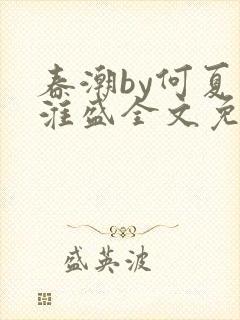 春潮by何夏
淮盛全文免
盛英波